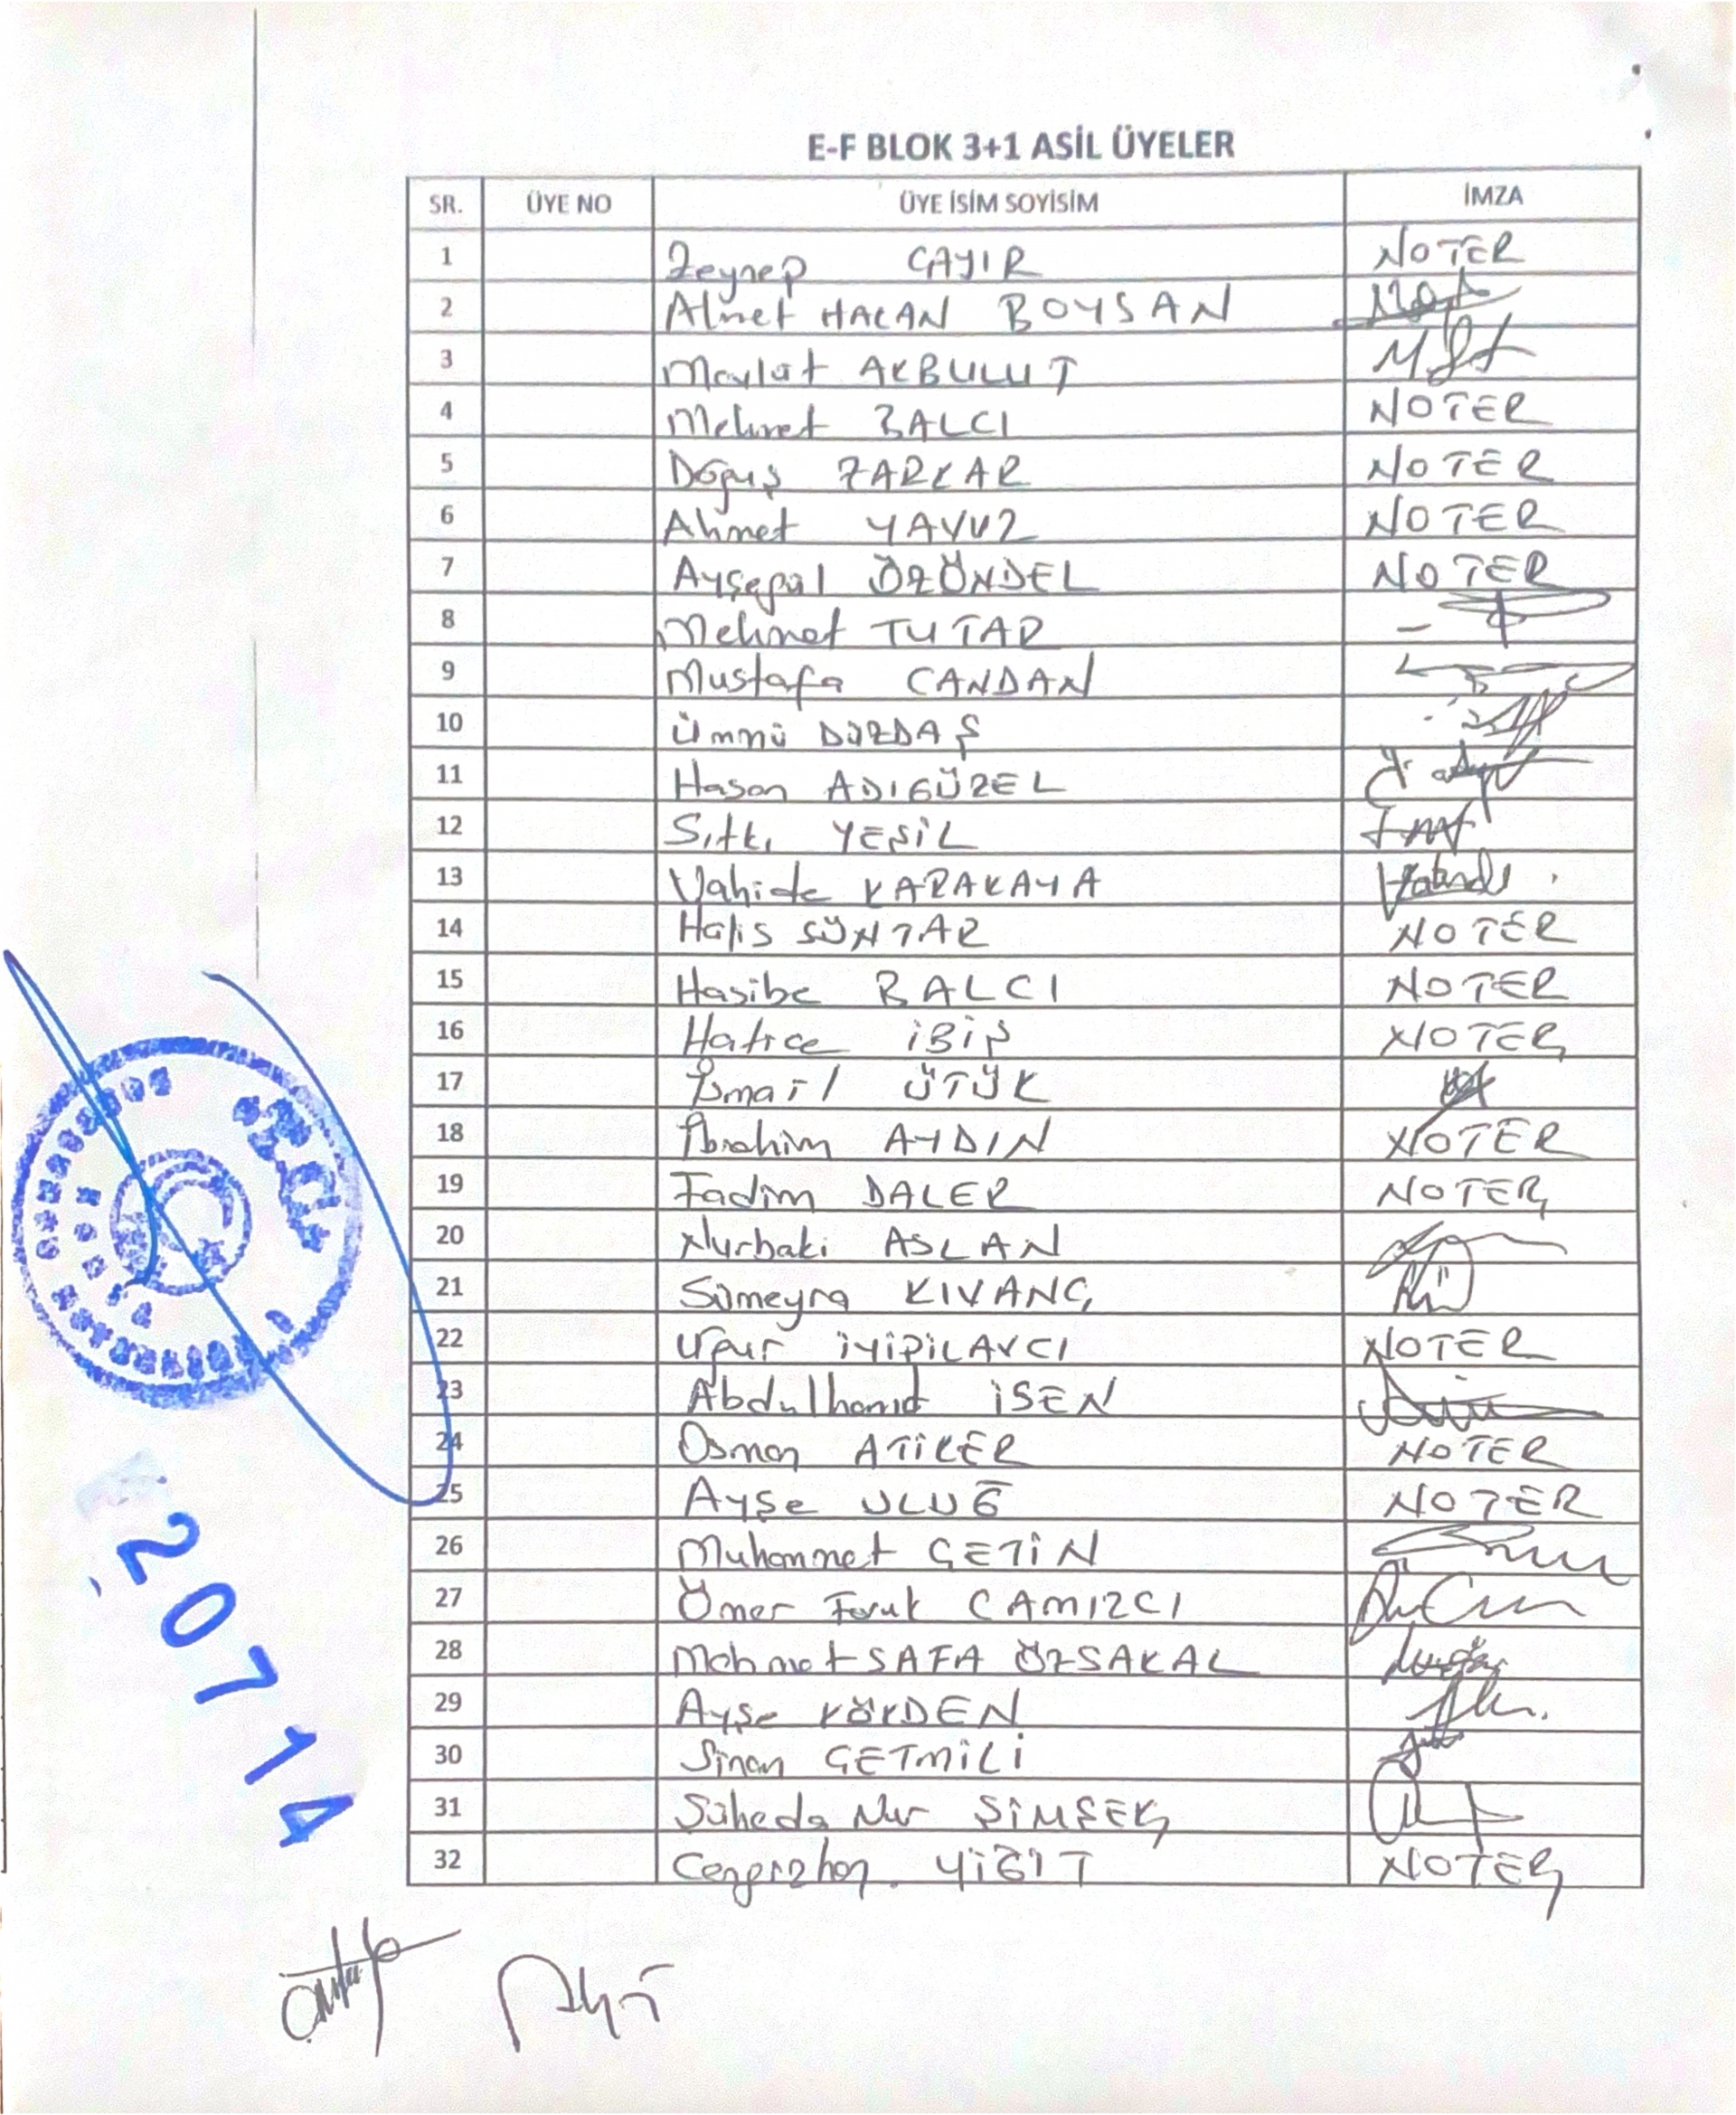 E-F BLOK 3+1 ASİL ÜYELER
SR. ÜYE NO ÜYE İSİM SOYİSİM İMZA
1 Zeynep ÇAYIR NOTER
2 Ahmet HAKAN BOYSAN
3 Mevlüt AKBULUT
4 Mehmet BALCI NOTER
5 Doğuş ZARKAR NOTER
6 Ahmet YAVUZ NOTER
7 Ayşegül ÖZÖNDEL NOTER
8 Mehmet TUTAR
9 Mustafa CANDAN
10 Ümmü DÜZDAŞ
11 Hasan ADIGÜZEL
12 Sıtkı YEŞİL
13 Vahide KARAKAYA
14 Halis SÜNTAR NOTER
15 Hasibe BALCI NOTER
16 Hatice İBİŞ NOTER
17 İsmail ÜTÜK
18 İbrahim AYDIN NOTER
19 Fadim DALER NOTER
20 Nurbaki ASLAN
21 Sümeyra KIVANÇ
22 Uğur İYİPİLAVCI NOTER
23 Abdulhamid İSEN
24 Osman ATİKER NOTER
25 Ayşe ULUĞ NOTER
26 Muhammet ÇETİN
27 Ömer Faruk CAMIZCI
28 Mehmet SAFA ÖZSAKAL
29 Ayşe KÖKDEN
30 Sinan ÇETMİLİ
31 Süheda Nur ŞİMŞEK
32 Cengizhan YİĞİT NOTER
20714